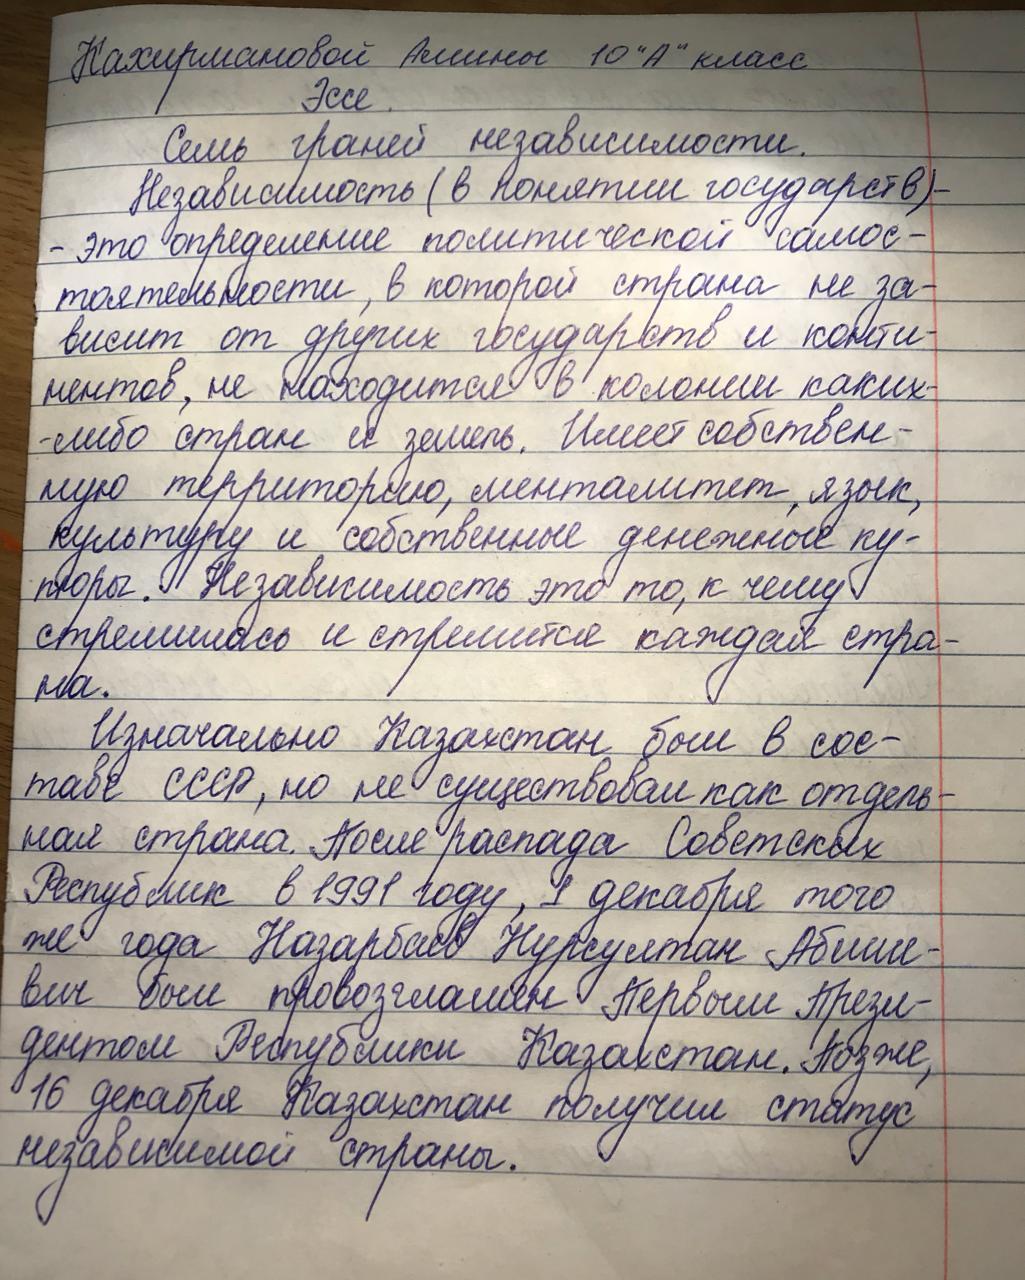 Кахирмановой Амины 10 "А" класс
Эссе.
Семь граней независимости.
Независимость (в понятии государств)-
- это определение политической самос-
тоятельности, в которой страна не за-
висит от других государств и конти-
нентов, не находится в колонии каких-
-либо стран и земель. Имеет собствен-
ную территорию, менталитет, язык,
культуру и собственные денежные ку-
пюры. Независимость это то, к чему
стремилась и стремится каждая стра-
на.
Изначально Казахстан был в сос-
таве СССР, но не существовал как отдель-
ная страна. После распада Советских
Республик в 1991 году, 1 декабря того
же года Назарбаев Нурсултан Абише-
вич был провозглашён Первым Прези-
дентом Республики Казахстан. Позже,
16 декабря Казахстан получил статус
независимой страны.